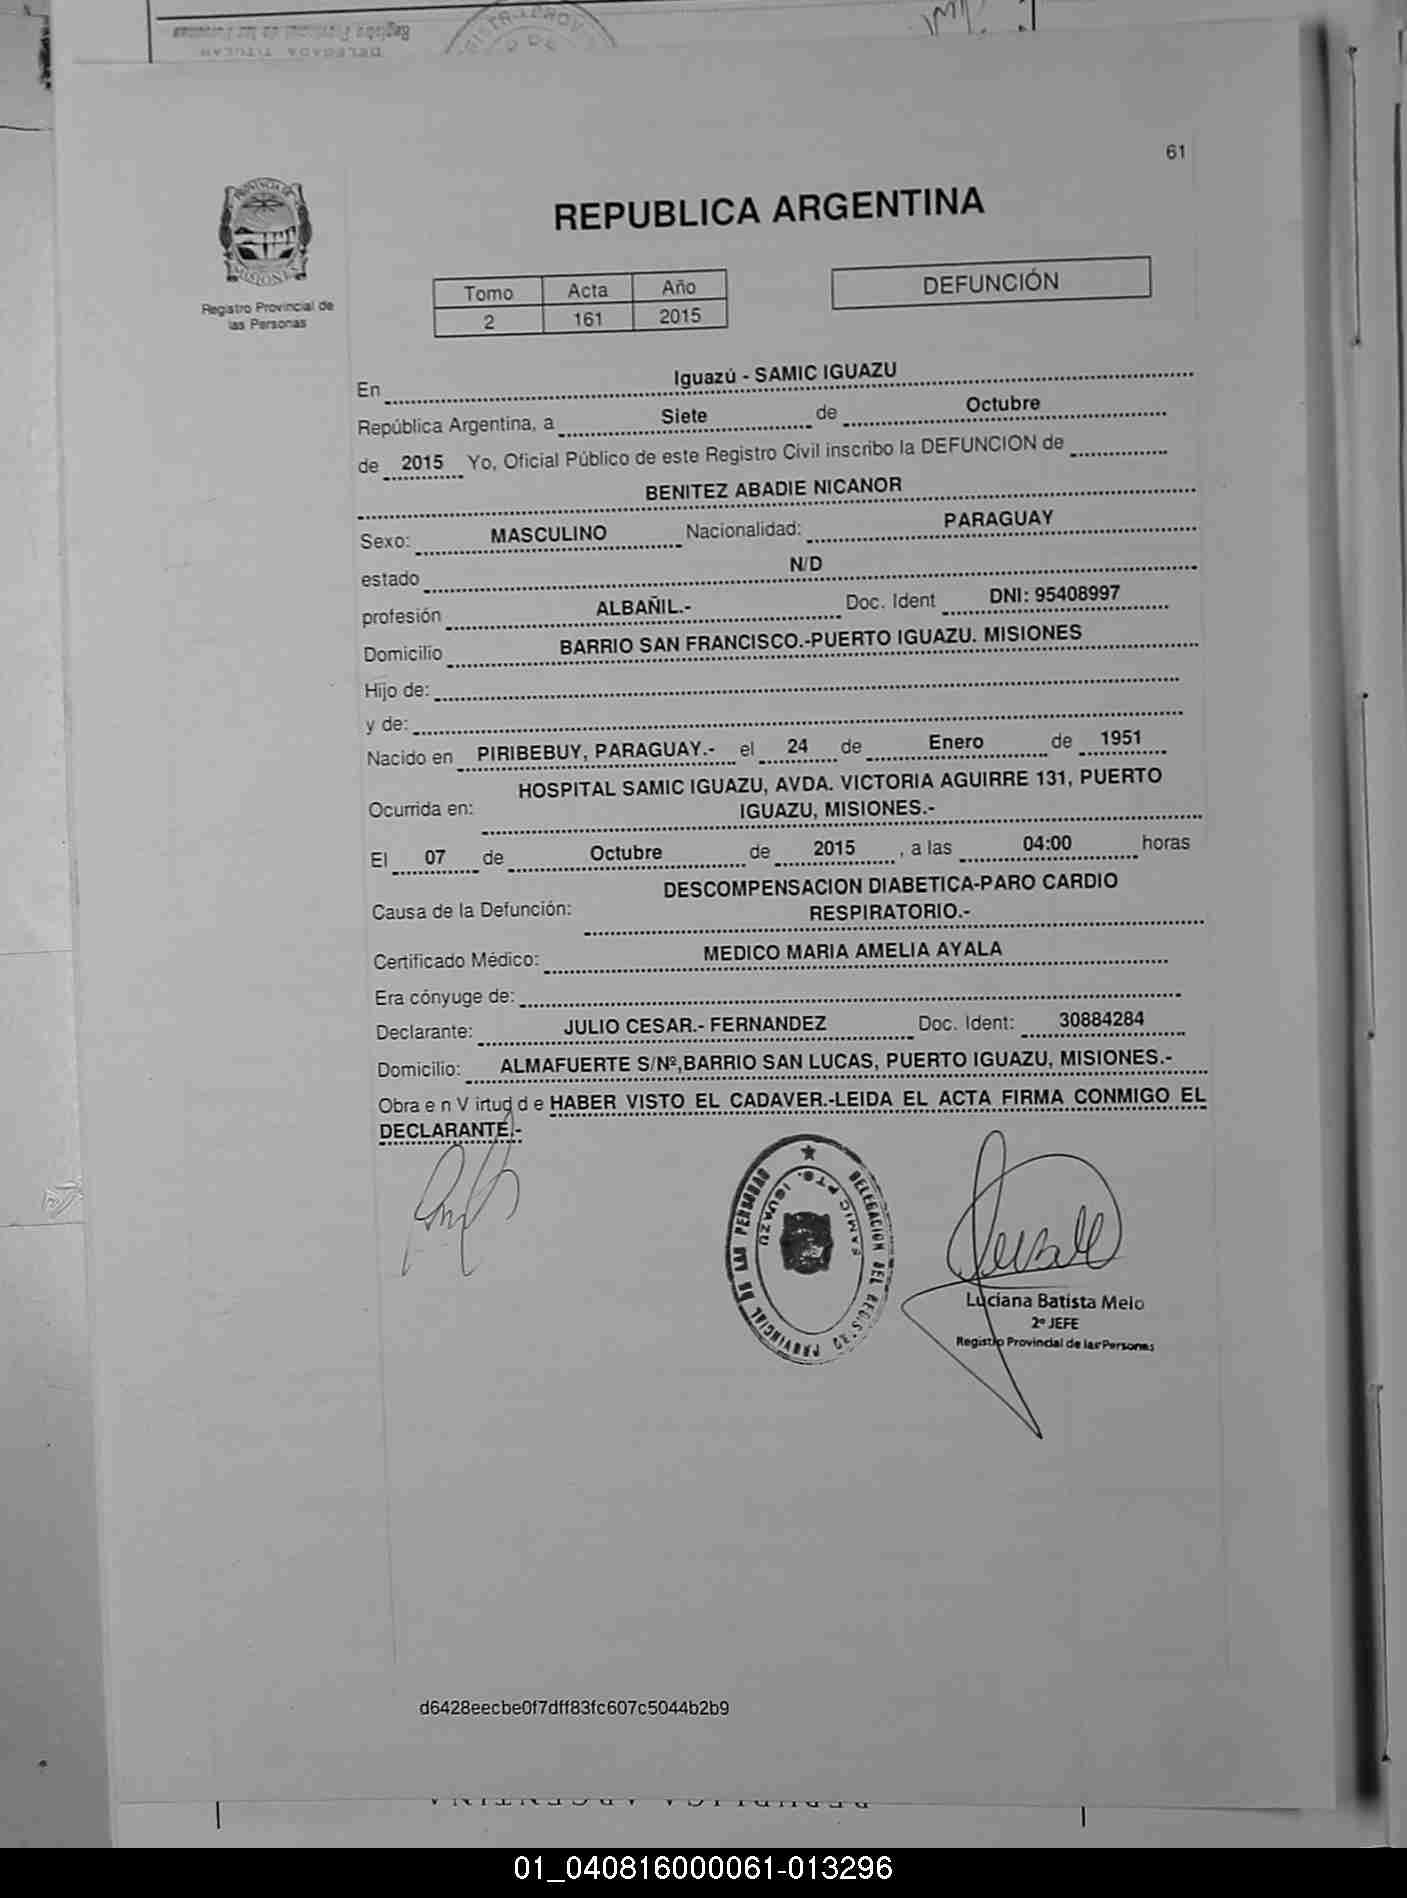 Registro Provincial de las Personas
DELEGADA TITULAR
61
PROVINCIA DE
MISIONES
Registro Provincial de
las Personas
REPUBLICA ARGENTINA
Tomo Acta Año
2 161 2015
DEFUNCIÓN
En Iguazú - SAMIC IGUAZU
República Argentina, a Siete de Octubre
de 2015 Yo, Oficial Público de este Registro Civil inscribo la DEFUNCION de
BENITEZ ABADIE NICANOR
Sexo: MASCULINO Nacionalidad: PARAGUAY
estado N/D
profesión ALBAÑIL.- Doc. Ident DNI: 95408997
Domicilio BARRIO SAN FRANCISCO.-PUERTO IGUAZU. MISIONES
Hijo de:
y de:
Nacido en PIRIBEBUY, PARAGUAY.- el 24 de Enero de 1951
HOSPITAL SAMIC IGUAZU, AVDA. VICTORIA AGUIRRE 131, PUERTO
Ocurrida en: IGUAZU, MISIONES.-
El 07 de Octubre de 2015 , a las 04:00 horas
DESCOMPENSACION DIABETICA-PARO CARDIO
Causa de la Defunción: RESPIRATORIO.-
Certificado Médico: MEDICO MARIA AMELIA AYALA
Era cónyuge de:
Declarante: JULIO CESAR.- FERNANDEZ Doc. Ident: 30884284
Domicilio: ALMAFUERTE S/Nº,BARRIO SAN LUCAS, PUERTO IGUAZU, MISIONES.-
Obra e n V irtud d e HABER VISTO EL CADAVER.-LEIDA EL ACTA FIRMA CONMIGO EL
DECLARANTE.-
DELEGACION DEL REGISTRO PROVINCIAL DE LAS PERSONAS
SAMIC PTO. IGUAZU
Luciana Batista Melo
2º JEFE
Registro Provincial de las Personas
d6428eecbe0f7dff83fc607c5044b2b9
REPUBLICA ARGENTINA
01_040816000061-013296